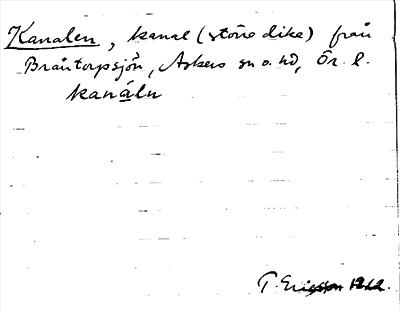 Kanalen, kanal (större dike) från
Bråtorpsjön, Askers sn o. hd, Ör. l.
kanáln
T. Ericsson 1912.